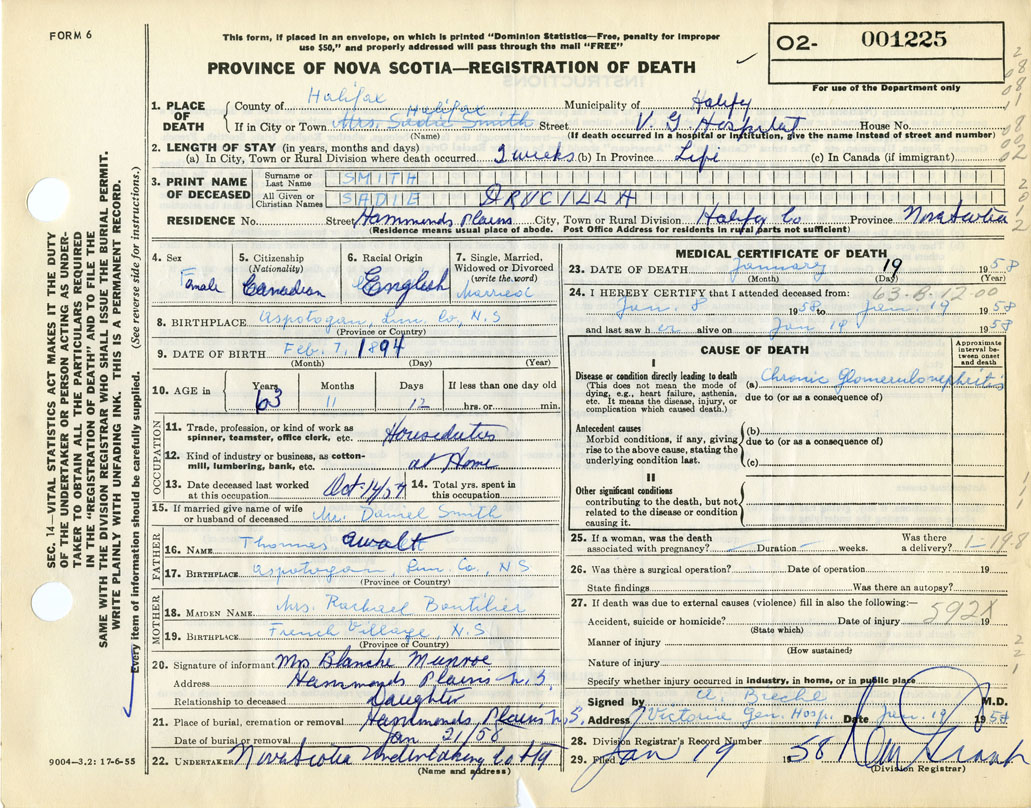 FORM 6
This form, if placed in an envelope, on which is printed "Dominion Statistics—Free, penalty for improper
use $50," and properly addressed will pass through the mail "FREE"
O2- 001225
For use of the Department only
PROVINCE OF NOVA SCOTIA—REGISTRATION OF DEATH
SEC. 14—VITAL STATISTICS ACT MAKES IT THE DUTY
OF THE UNDERTAKER OR PERSON ACTING AS UNDER-
TAKER TO OBTAIN ALL THE PARTICULARS REQUIRED
IN THE "REGISTRATION OF DEATH" AND TO FILE THE
SAME WITH THE DIVISION REGISTRAR WHO SHALL ISSUE THE BURIAL PERMIT.
WRITE PLAINLY WITH UNFADING INK. THIS IS A PERMANENT RECORD.
Every item of information should be carefully supplied. (See reverse side for instructions.)
1. PLACE OF DEATH County of Halifax Municipality of Halifx
If in City or Town Mrs. Sadie Smith Halifax Street V. G. Hospital House No.
(Name) (If death occurred in a hospital or institution, give the name instead of street and number)
2. LENGTH OF STAY (in years, months and days)
(a) In City, Town or Rural Division where death occurred 2 weeks (b) In Province Life (c) In Canada (if immigrant)
3. PRINT NAME OF DECEASED Surname or Last Name SMITH
All Given or Christian Names SADIE DRUCILLA
RESIDENCE No. Street Hammonds Plains City, Town or Rural Division Halifx Co Province Nova Scotia
(Residence means usual place of abode. Post Office Address for residents in rural parts not sufficient)
4. Sex Female
5. Citizenship (Nationality) Canadian
6. Racial Origin English
7. Single, Married, Widowed or Divorced (write the word) Married
8. BIRTHPLACE Aspotogan, Lun. Co., N.S
(Province or Country)
9. DATE OF BIRTH Feb. 7, 1894
(Month) (Day) (Year)
10. AGE in Years 63 Months 11 Days 12 If less than one day old hrs. or min.
OCCUPATION
11. Trade, profession, or kind of work as spinner, teamster, office clerk, etc. Houseduties
12. Kind of industry or business, as cotton-mill, lumbering, bank, etc. at Home
13. Date deceased last worked at this occupation Oct 14/57 14. Total yrs. spent in this occupation
15. If married give name of wife or husband of deceased Mr. Daniel Smith
FATHER
16. NAME Thomas Awalt
17. BIRTHPLACE Aspotogan, Lun. Co., NS
(Province or Country)
MOTHER
18. MAIDEN NAME Mrs. Rachael Boutilier
19. BIRTHPLACE French Village, N.S
(Province of Country)
20. Signature of informant Mrs Blanche Munroe
Address Hammonds Plains N.S.
Relationship to deceased Daughter
21. Place of burial, cremation or removal Hammonds Plains N.S.
Date of burial or removal Jan 21/58
22. UNDERTAKER Nova Scotia Undertaking Co Ltd
(Name and address)
9004—3.2: 17-6-55
MEDICAL CERTIFICATE OF DEATH
23. DATE OF DEATH January 19 1958
(Month) (Day) (Year)
24. I HEREBY CERTIFY that I attended deceased from:
Jan. 8 1958 to Jan. 19 1958
and last saw her alive on Jan 19 1958
CAUSE OF DEATH
Approximate interval between onset and death
I
Disease or condition directly leading to death
(This does not mean the mode of dying, e.g., heart failure, asthenia, etc. It means the disease, injury, or complication which caused death.)
(a) Chronic Glomerulonephritis
due to (or as a consequence of)
Antecedent causes
Morbid conditions, if any, giving rise to the above cause, stating the underlying condition last.
(b)
due to (or as a consequence of)
(c)
II
Other significant conditions
contributing to the death, but not related to the disease or condition causing it.
25. If a woman, was the death associated with pregnancy? Duration weeks. Was there a delivery?
26. Was there a surgical operation? Date of operation 19
State findings Was there an autopsy?
27. If death was due to external causes (violence) fill in also the following:—
592X
Accident, suicide or homicide? Date of injury 19
(State which)
Manner of injury
(How sustained)
Nature of injury
Specify whether injury occurred in industry, in home, or in public place
Signed by M.D.
Address Victoria Gen. Hosp. Date Jan. 19 1958
28. Division Registrar's Record Number
29. Filed Jan 19 1958
(Division Registrar)